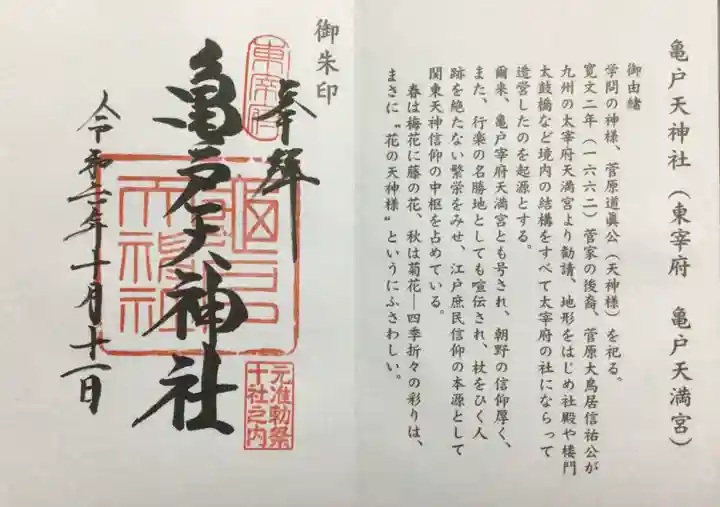 亀戸天神社（東宰府　亀戸天満宮）
御由緒
学問の神様、菅原道眞公（天神様）を祀る。
寛文二年（一六六二）菅家の後裔、菅原大鳥居信祐公が
九州の太宰府天満宮より勧請、地形をはじめ社殿や楼門
太鼓橋など境内の結構をすべて太宰府の社にならって
造営したのを起源とする。
爾来、亀戸宰府天満宮とも号され、朝野の信仰厚く、
また、行楽の名勝地としても喧伝され、杖をひく人
跡を絶たない繁栄をみせ、江戸庶民信仰の本源として
関東天神信仰の中枢を占めている。
春は梅花に藤の花、秋は菊花―四季折々の彩りは、
まさに〝花の天神様〟というにふさわしい。
御朱印
東宰府
奉拝
亀戸天神社
亀戸天神社
元准勅祭
十社之内
令和二年十月十一日